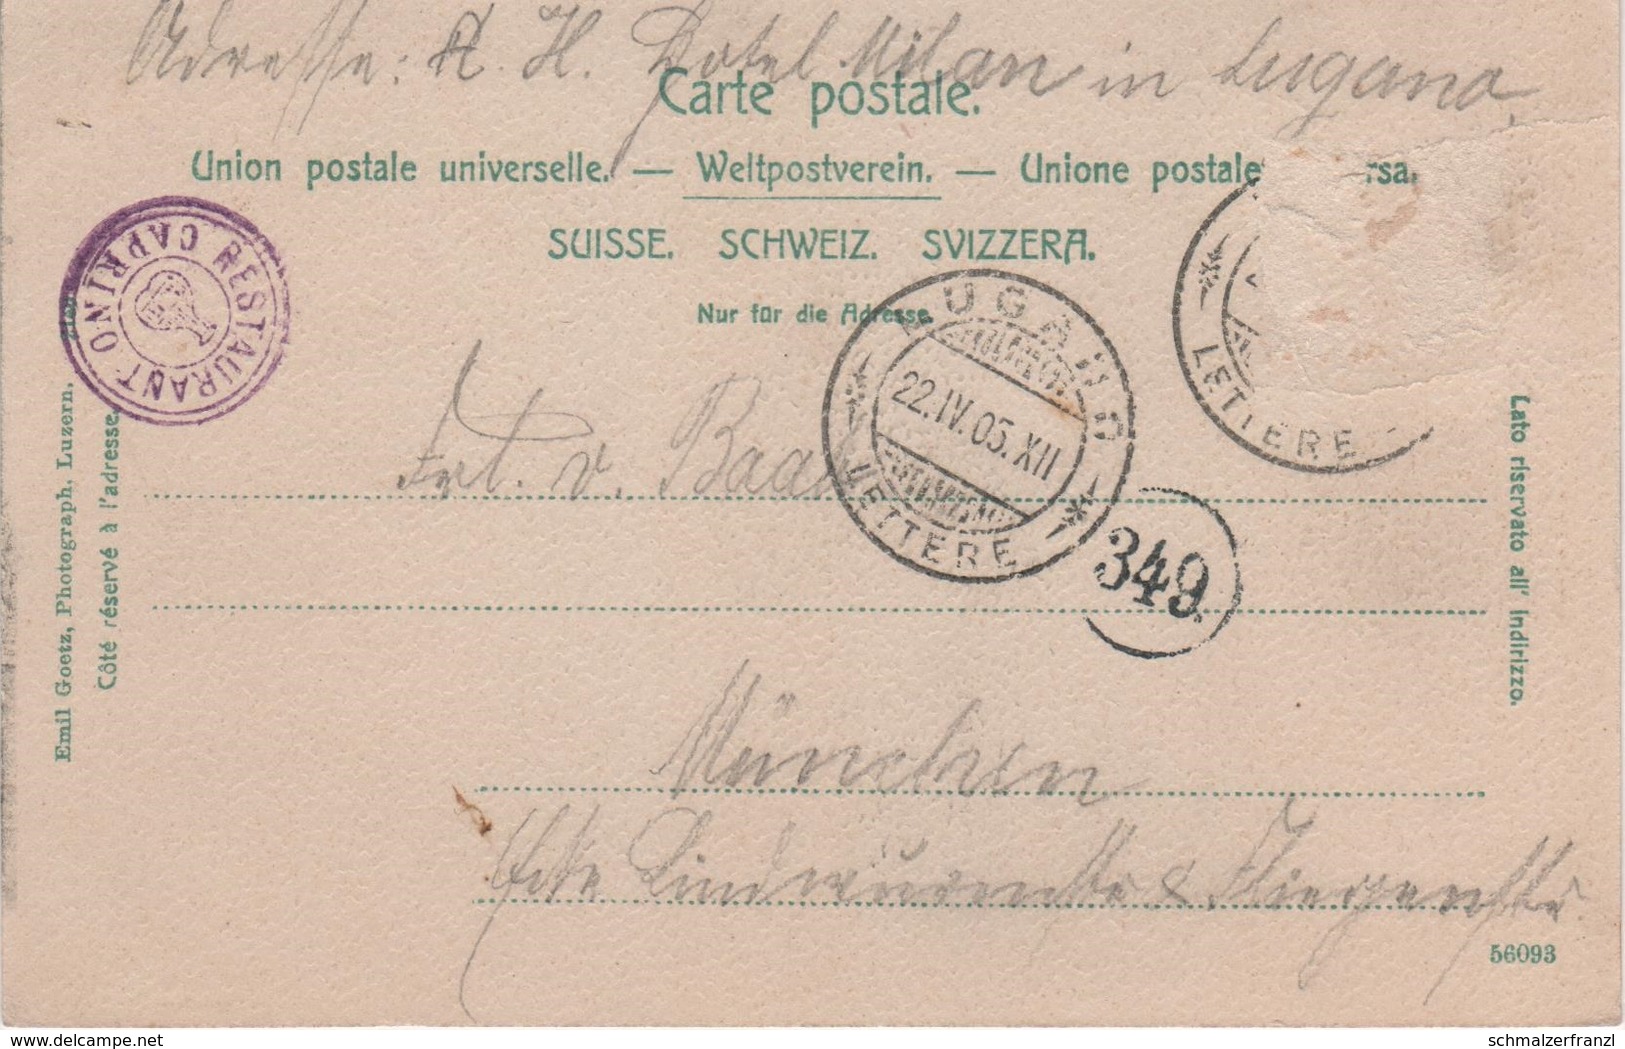 Adresse: A. H. Hotel Milan in Lugano.
Carte postale.
Union postale universelle. — Weltpostverein. — Unione postale rsa.
SUISSE. SCHWEIZ. SVIZZERA.
Nur für die Adresse.
RESTAURANT CAPRINO
LUGANO
22.IV.05.XII
LETTERE
LETTERE
349
Frl. v. Baal
München
Ecke Lindwurmstr. &
56093
Emil Goetz, Photograph, Luzern.
Côté réservé à l'adresse.
Lato riservato all' indirizzo.
delcampe.net
schmalzerfranzl